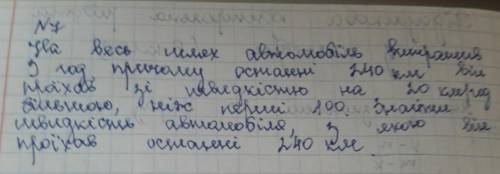 №7
На весь шлях автомобіль витратив
5 год причому останні 240 км він
проїхав зі швидкістю на 20 км/год
більшою, ніж перші 100. Знайти
швидкість автомобіля, з якою він
проїхав останні 240 км